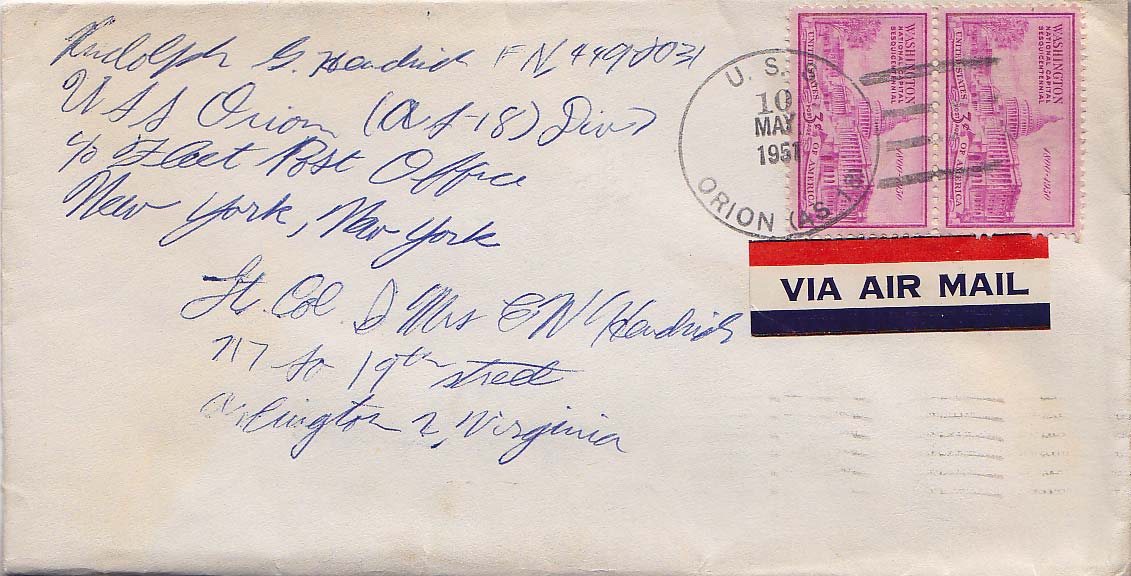 Rudolph G. Hendrich FN 4492031
USS Orion (AS-18) Div 7
c/o Fleet Post Office
New York, New York
U. S. S.
10
MAY
1951
ORION (AS 18)
WASHINGTON
NATIONAL CAPITAL
SESQUICENTENNIAL
UNITED STATES OF AMERICA
3¢
1800-1950
WASHINGTON
NATIONAL CAPITAL
SESQUICENTENNIAL
UNITED STATES OF AMERICA
3¢
1800-1950
VIA AIR MAIL
Lt. Col. & Mrs Hendrich
717 So 19th street
Arlington 2, Virginia